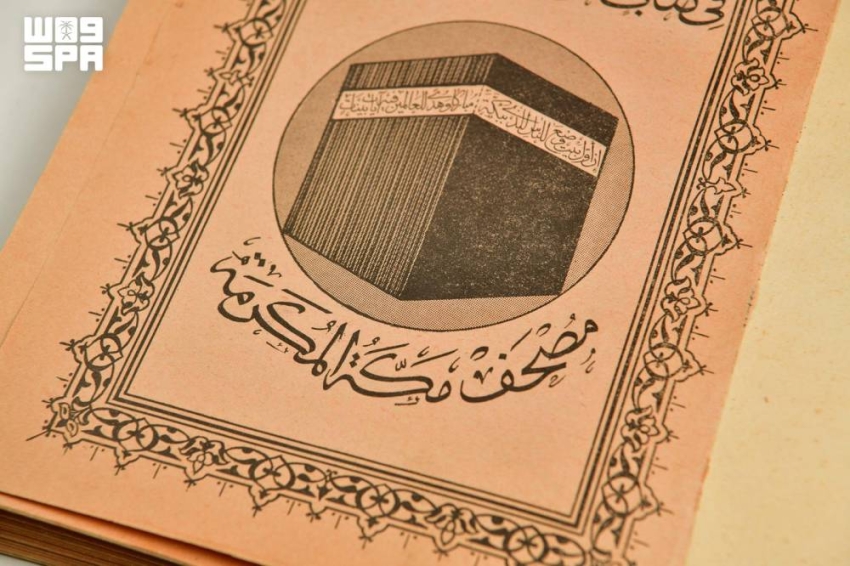 واس
SPA
في كتاب
إن أول بيت وضع للناس للذي ببكة مباركا وهدى للعالمين فيه آيات بينات
مُصْحَفْ مَكَّة المُكَرمَة